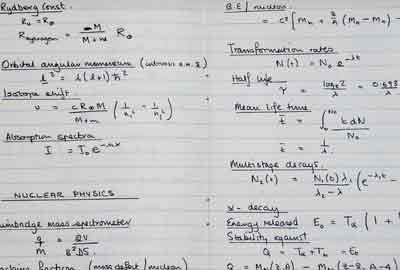 Rydberg Const.
R₀ = R∞
R hydrogen = M / M+m R∞
Orbital angular momentum
l² = l(l+1)ħ²
Isotope shift.
ν = cR∞M / M+m (1/n₁² - 1/n₂²)
Absorption spectra
I = I₀e
NUCLEAR PHYSICS
mass spectrometer
q/m = 2V / B²DS
fraction (mass defect / nucleon)
B.E / nucleon
= c² [Mₙ +
Transformation rates
N(t) = N₀ e^-λt
Half life
τ = log_e 2 / λ = 0.693
Mean life time
t̄ = ∫ t dN / N₀
t̄ = 1/λ
Multistage decays.
N₂(t) = N₁(0) λ₁ / λ₂ - λ₁ (e^-λ₁t -
α - decay
Energy released E₀ = Tα (1 +
Stability against
Q = Tα + Tₕ = E₀